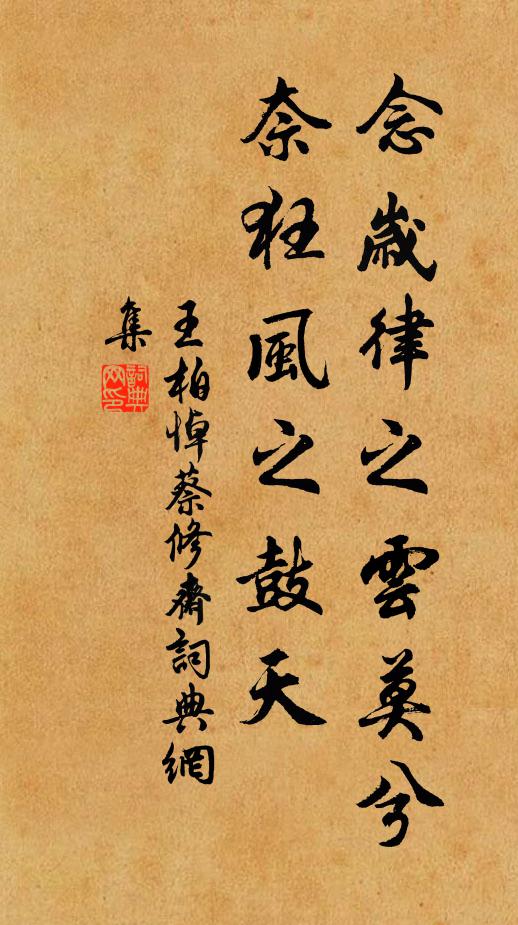 念歲律之雲莫兮
奈狂風之鼓天
王柏悼蔡修齋詞典網
集
詞典
网印